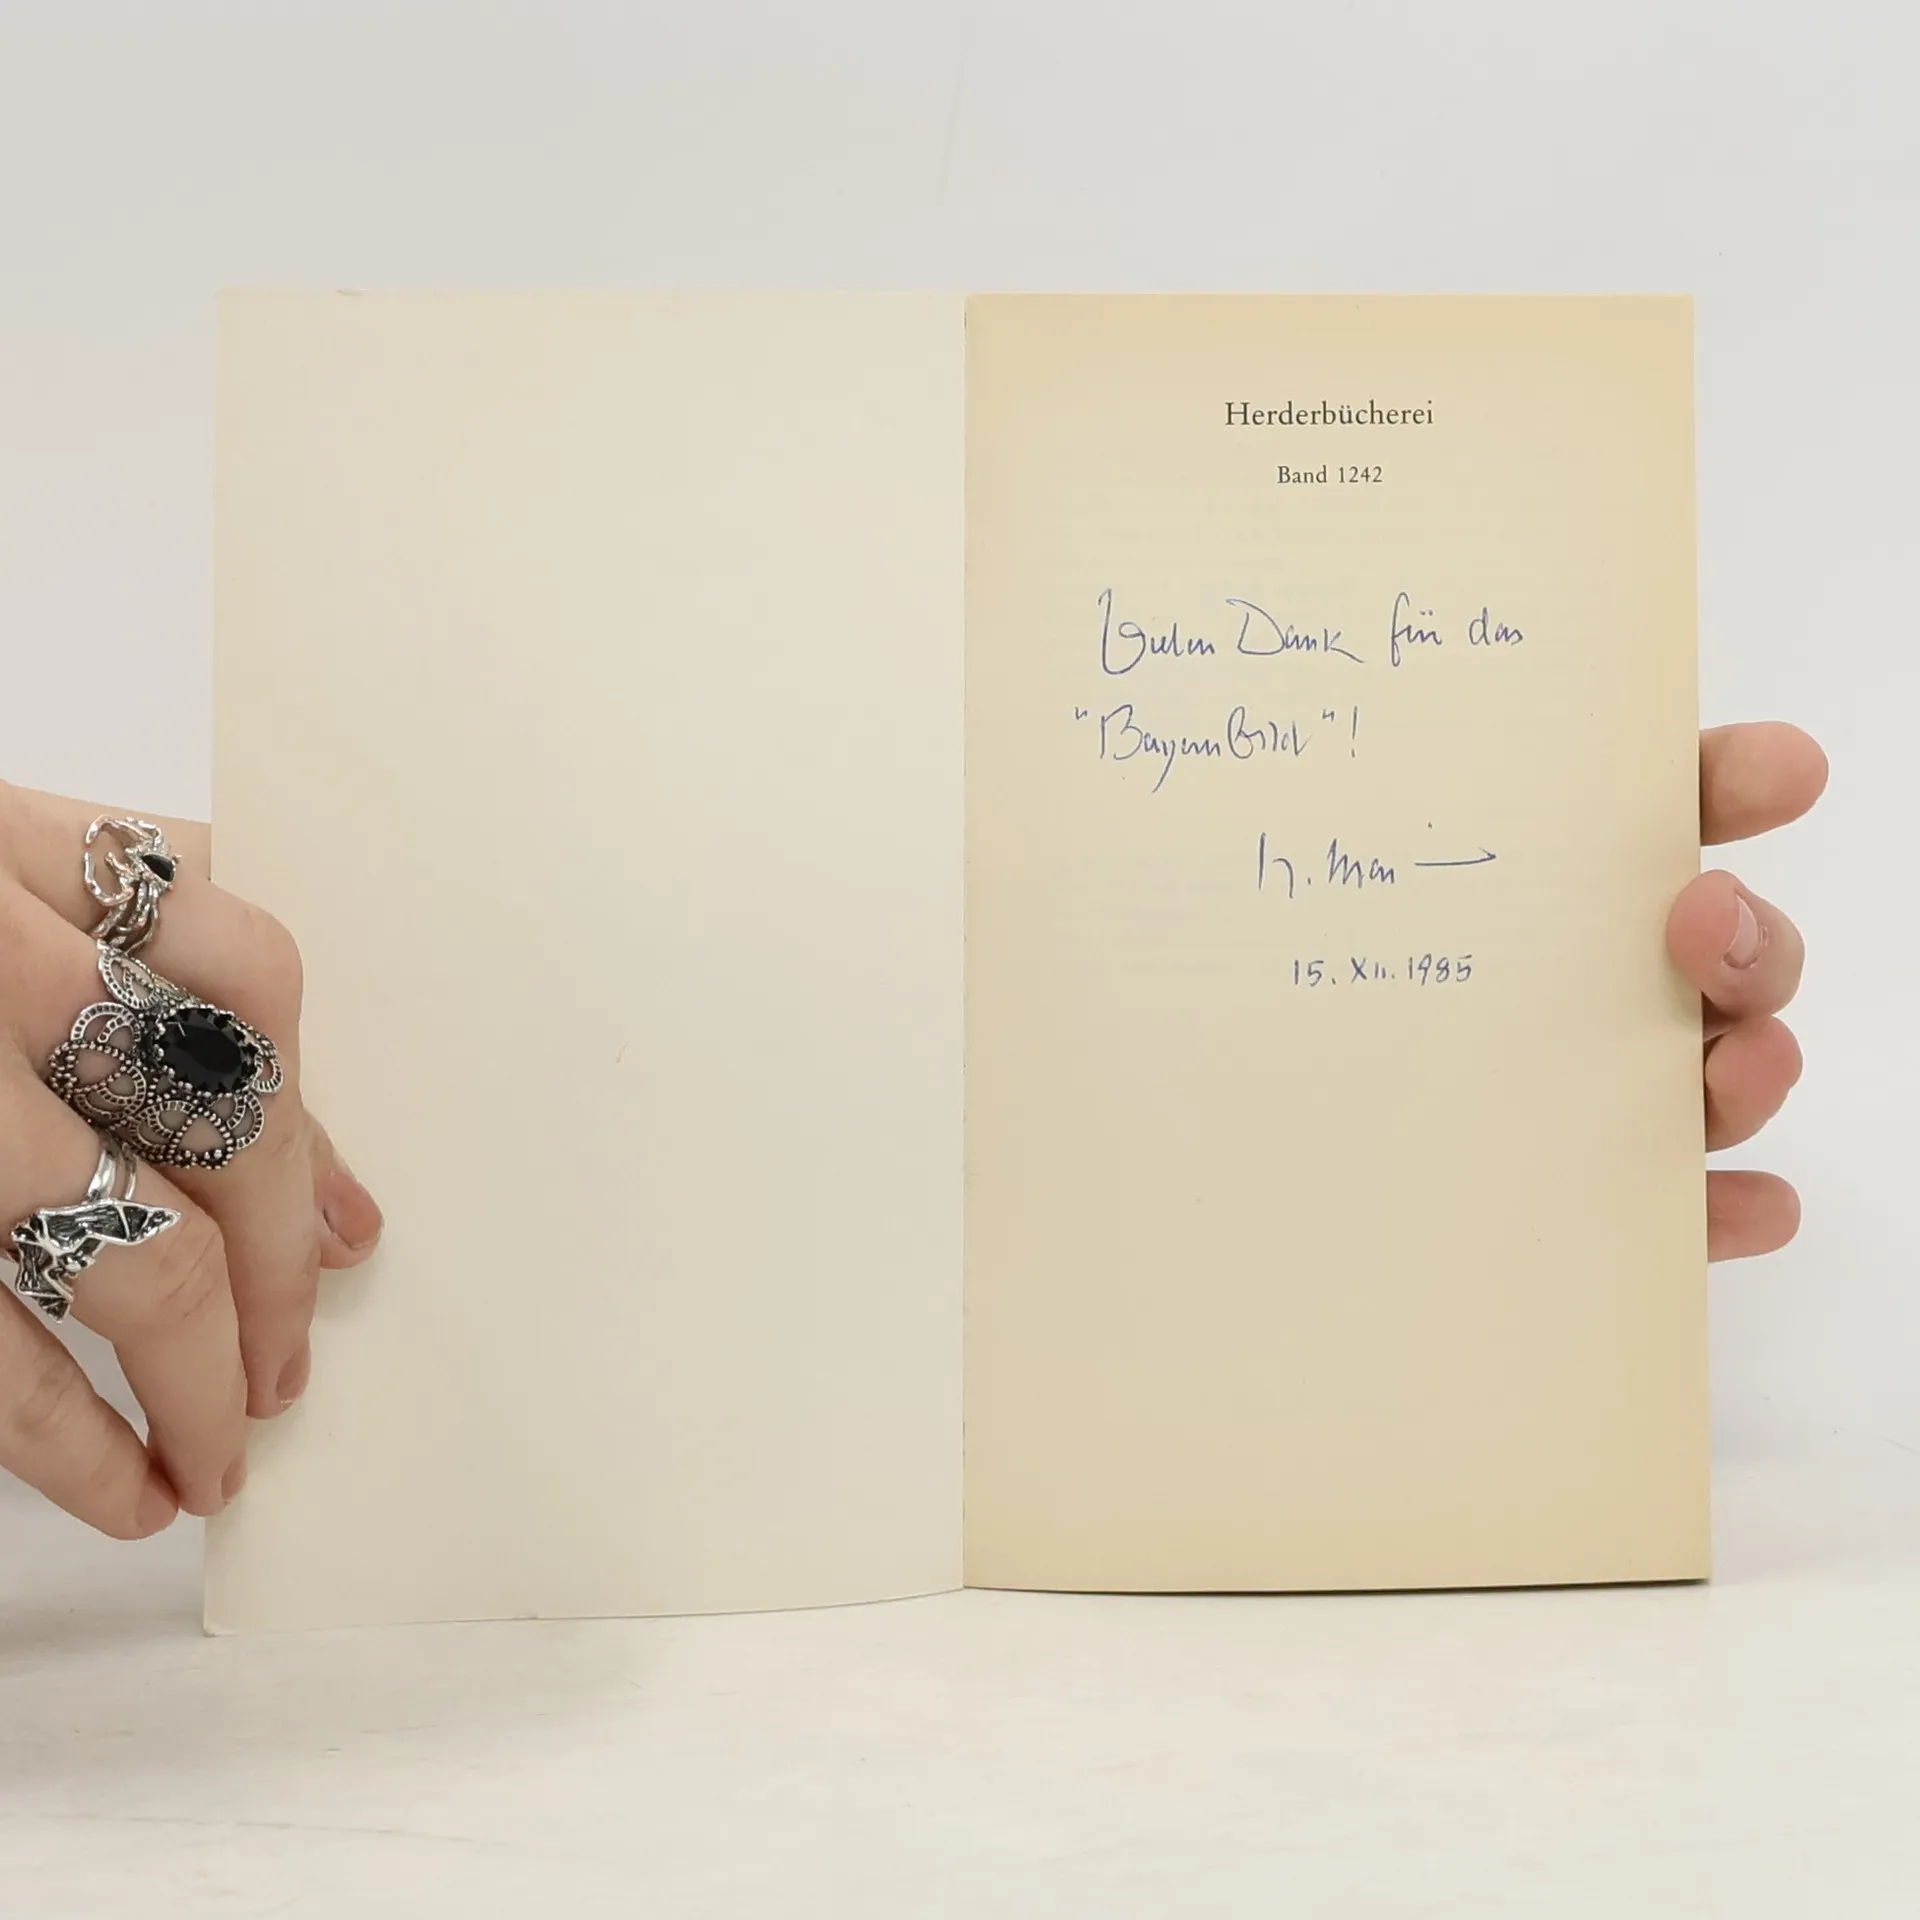 Herderbücherei
Band 1242
Vielen Dank für das
"Bayernbild"!
15. XII. 1985